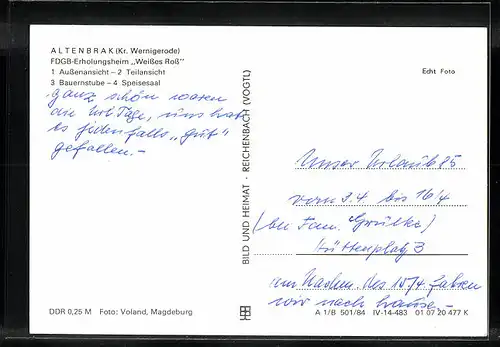 ALTENBRAK (Kr. Wernigerode)
FDGB-Erholungsheim „Weißes Roß"
1 Außenansicht – 2 Teilansicht
3 Bauernstube – 4 Speisesaal
ganz schön waren
die Url. Tage, uns hat
es jedenfalls „gut"
gefallen. –
DDR 0,25 M Foto: Voland, Magdeburg
BILD UND HEIMAT · REICHENBACH (VOGTL)
Echt Foto
Unser Urlaub 85
vom 3.4 bis 16/4
(bei Fam. Grulke)
Hüttenplatz 3
am Nachm. des 15/4. fahren
wir nach hause –
A 1/B 501/84 IV-14-483 01 07 20 477 K